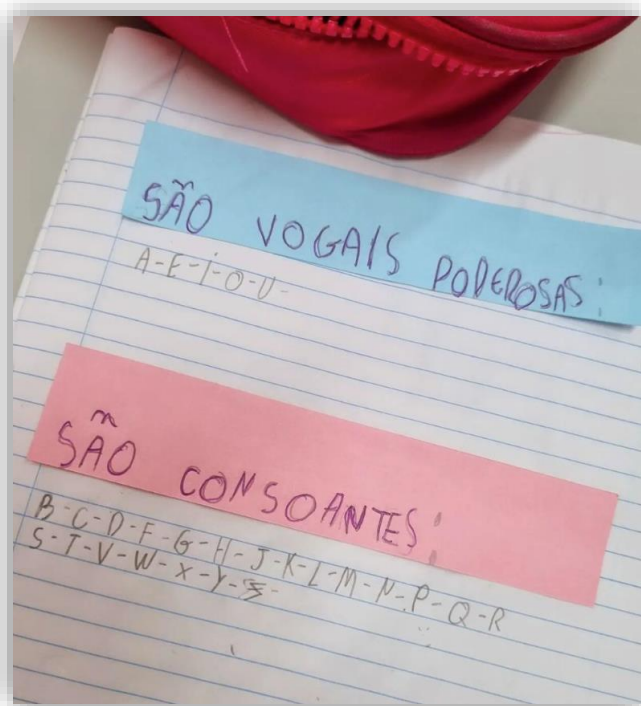 SÃO VOGAIS PODEROSAS:
A-E-I-O-U-
SÃO CONSOANTES:
B-C-D-F-G-H-J-K-L-M-N-P-Q-R
S-T-V-W-X-Y-Z-